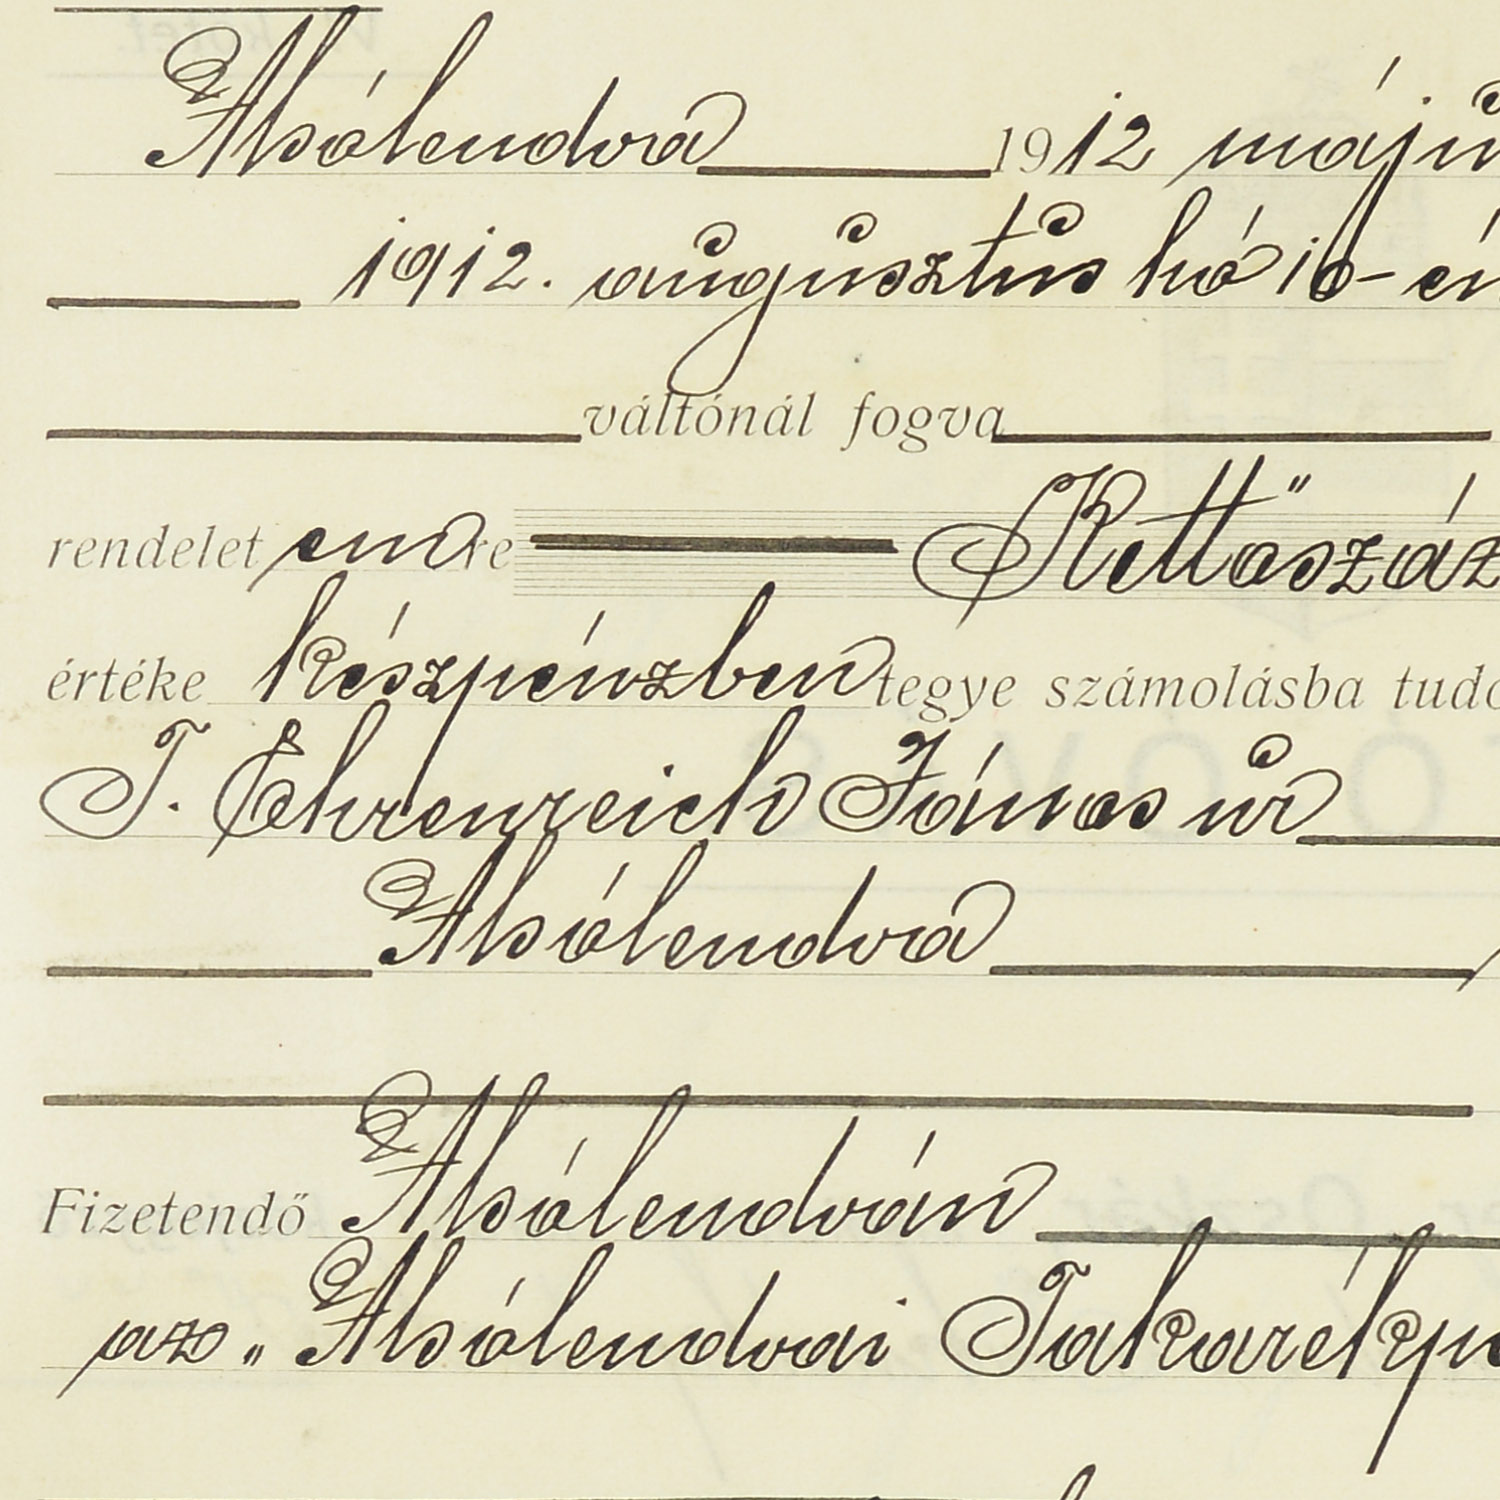 Alsólendva 1912 május
1912. augusztus hó 10-én
váltónál fogva
rendelet emre Kettőszáz
értéke készpénzben tegye számolásba tudo
T. Ehrenreich János úr
Alsólendva
Fizetendő Alsólendván
az „Alsólendvai Takarékp